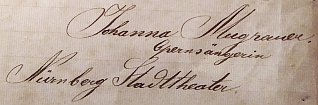 Johanna Mugrauer.
Opernsängerin
Nürnberg Stadttheater.